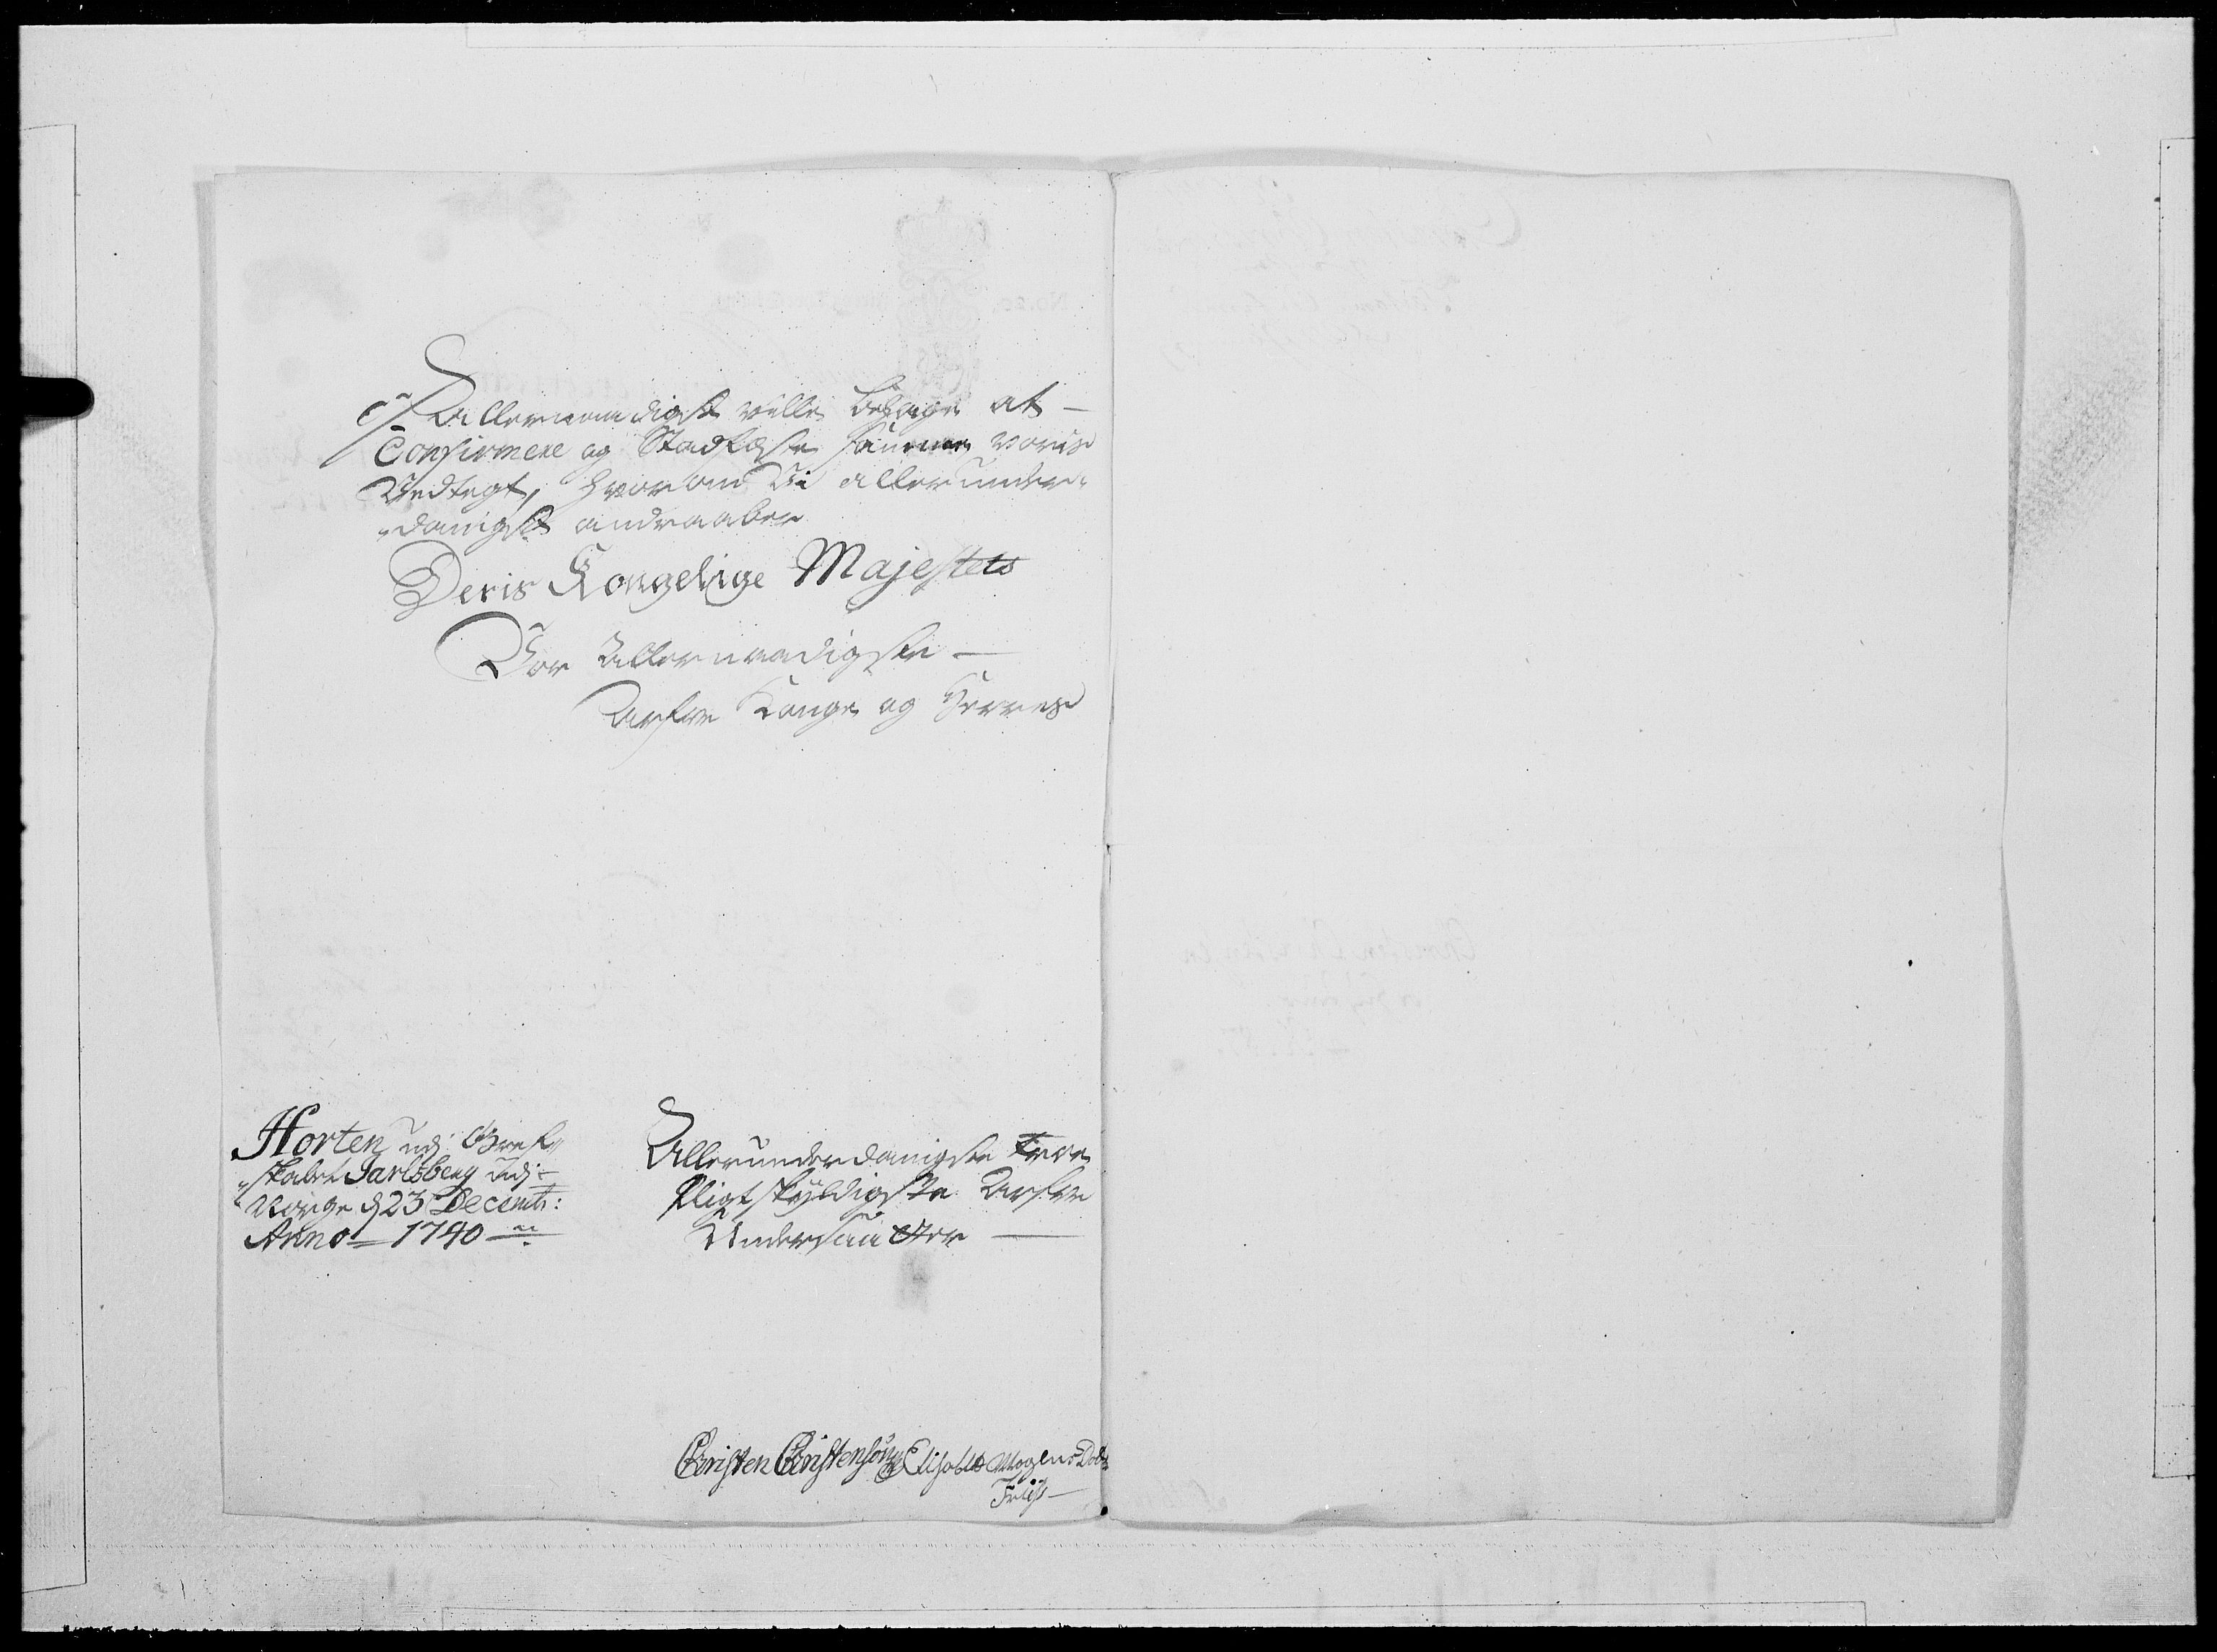 Allernaadigst ville behage at —
Confirmere og Stadfæste samme voris
Vedtegt, hvorom Vi allerunder-
danigst andraaber
Deris Kongelige Majestets
Vor Allernaadigste —
Arfve Konge og Herres
Horten udj Gref-
skabet Jarlsberg udj
Norge d 23 Decemb:
Anno 1740
Allerunderdanigste troe
Pligtskyldigste Arfve
Undersaatter —
Christen Christensøn Elisabet Mogens Dotr
Friis —